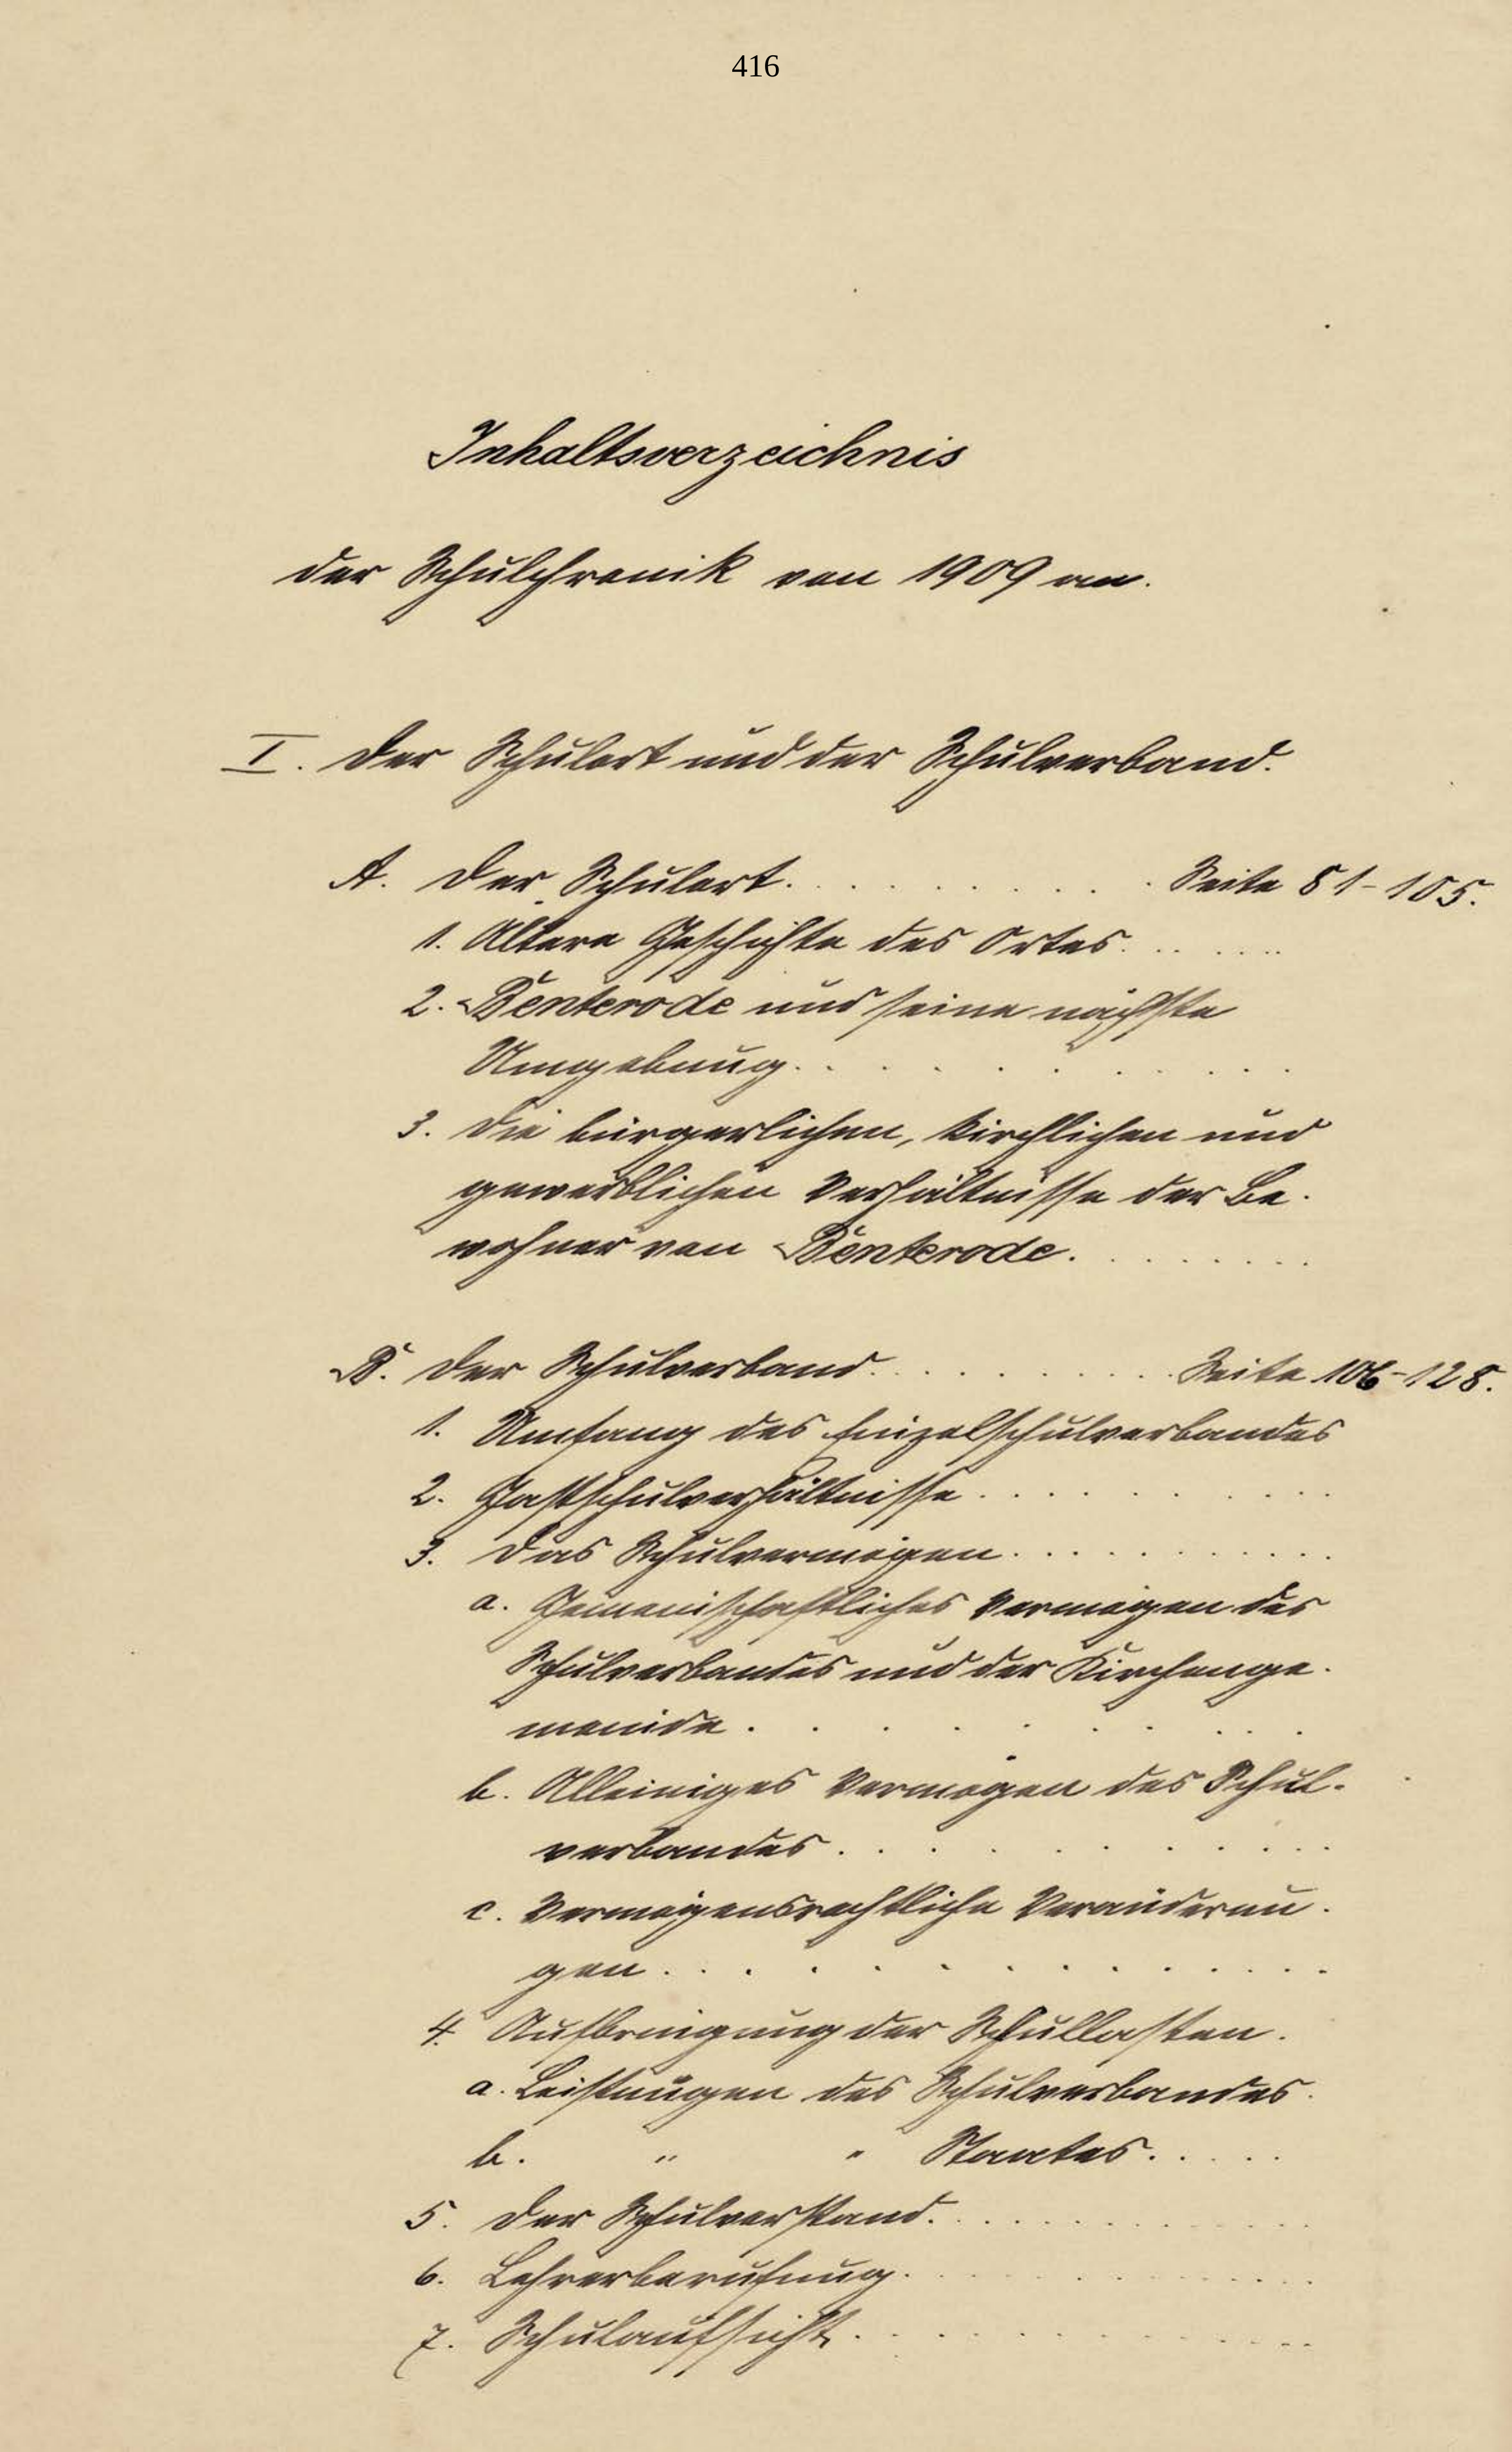 416
Inhaltsverzeichnis
der Schulchronik von 1909 an.
I. Der Schulort und der Schulverband.
A. Der Schulort. . . . . . . . . . Seite 81-105.
1. Ältere Geschichte des Ortes. . . . . .
2. Benterode und seine nächste
Umgebung. . . . . . . . . . .
3. Die bürgerlichen, kirchlichen und
gewerblichen Verhältnisse der Be-
wohner von Benterode. . . . . . . .
B. Der Schulverband. . . . . . . . Seite 106-128.
1. Umfang des Einzelschulverbandes
2. Gastschulverhältnisse . . . . . . . . .
3. Das Schulvermögen. . . . . . . . . .
a. Gemeinschaftliches Vermögen des
Schulverbandes und der Kirchenge-
meinde . . . . . . . . . .
b. Alleiniges Vermögen des Schul-
verbandes . . . . . . . . . .
c. Vermögensrechtliche Veränderun-
gen . . . . . . . . . . . . .
4. Aufbringung der Schullasten.
a. Leistungen des Schulverbandes.
b. " " Staates. . . . .
5. Der Schulvorstand. . . . . . . . . . .
6. Lehrerberufung. . . . . . . . . . . .
7. Schulaufsicht. . . . . . . . . . . . .